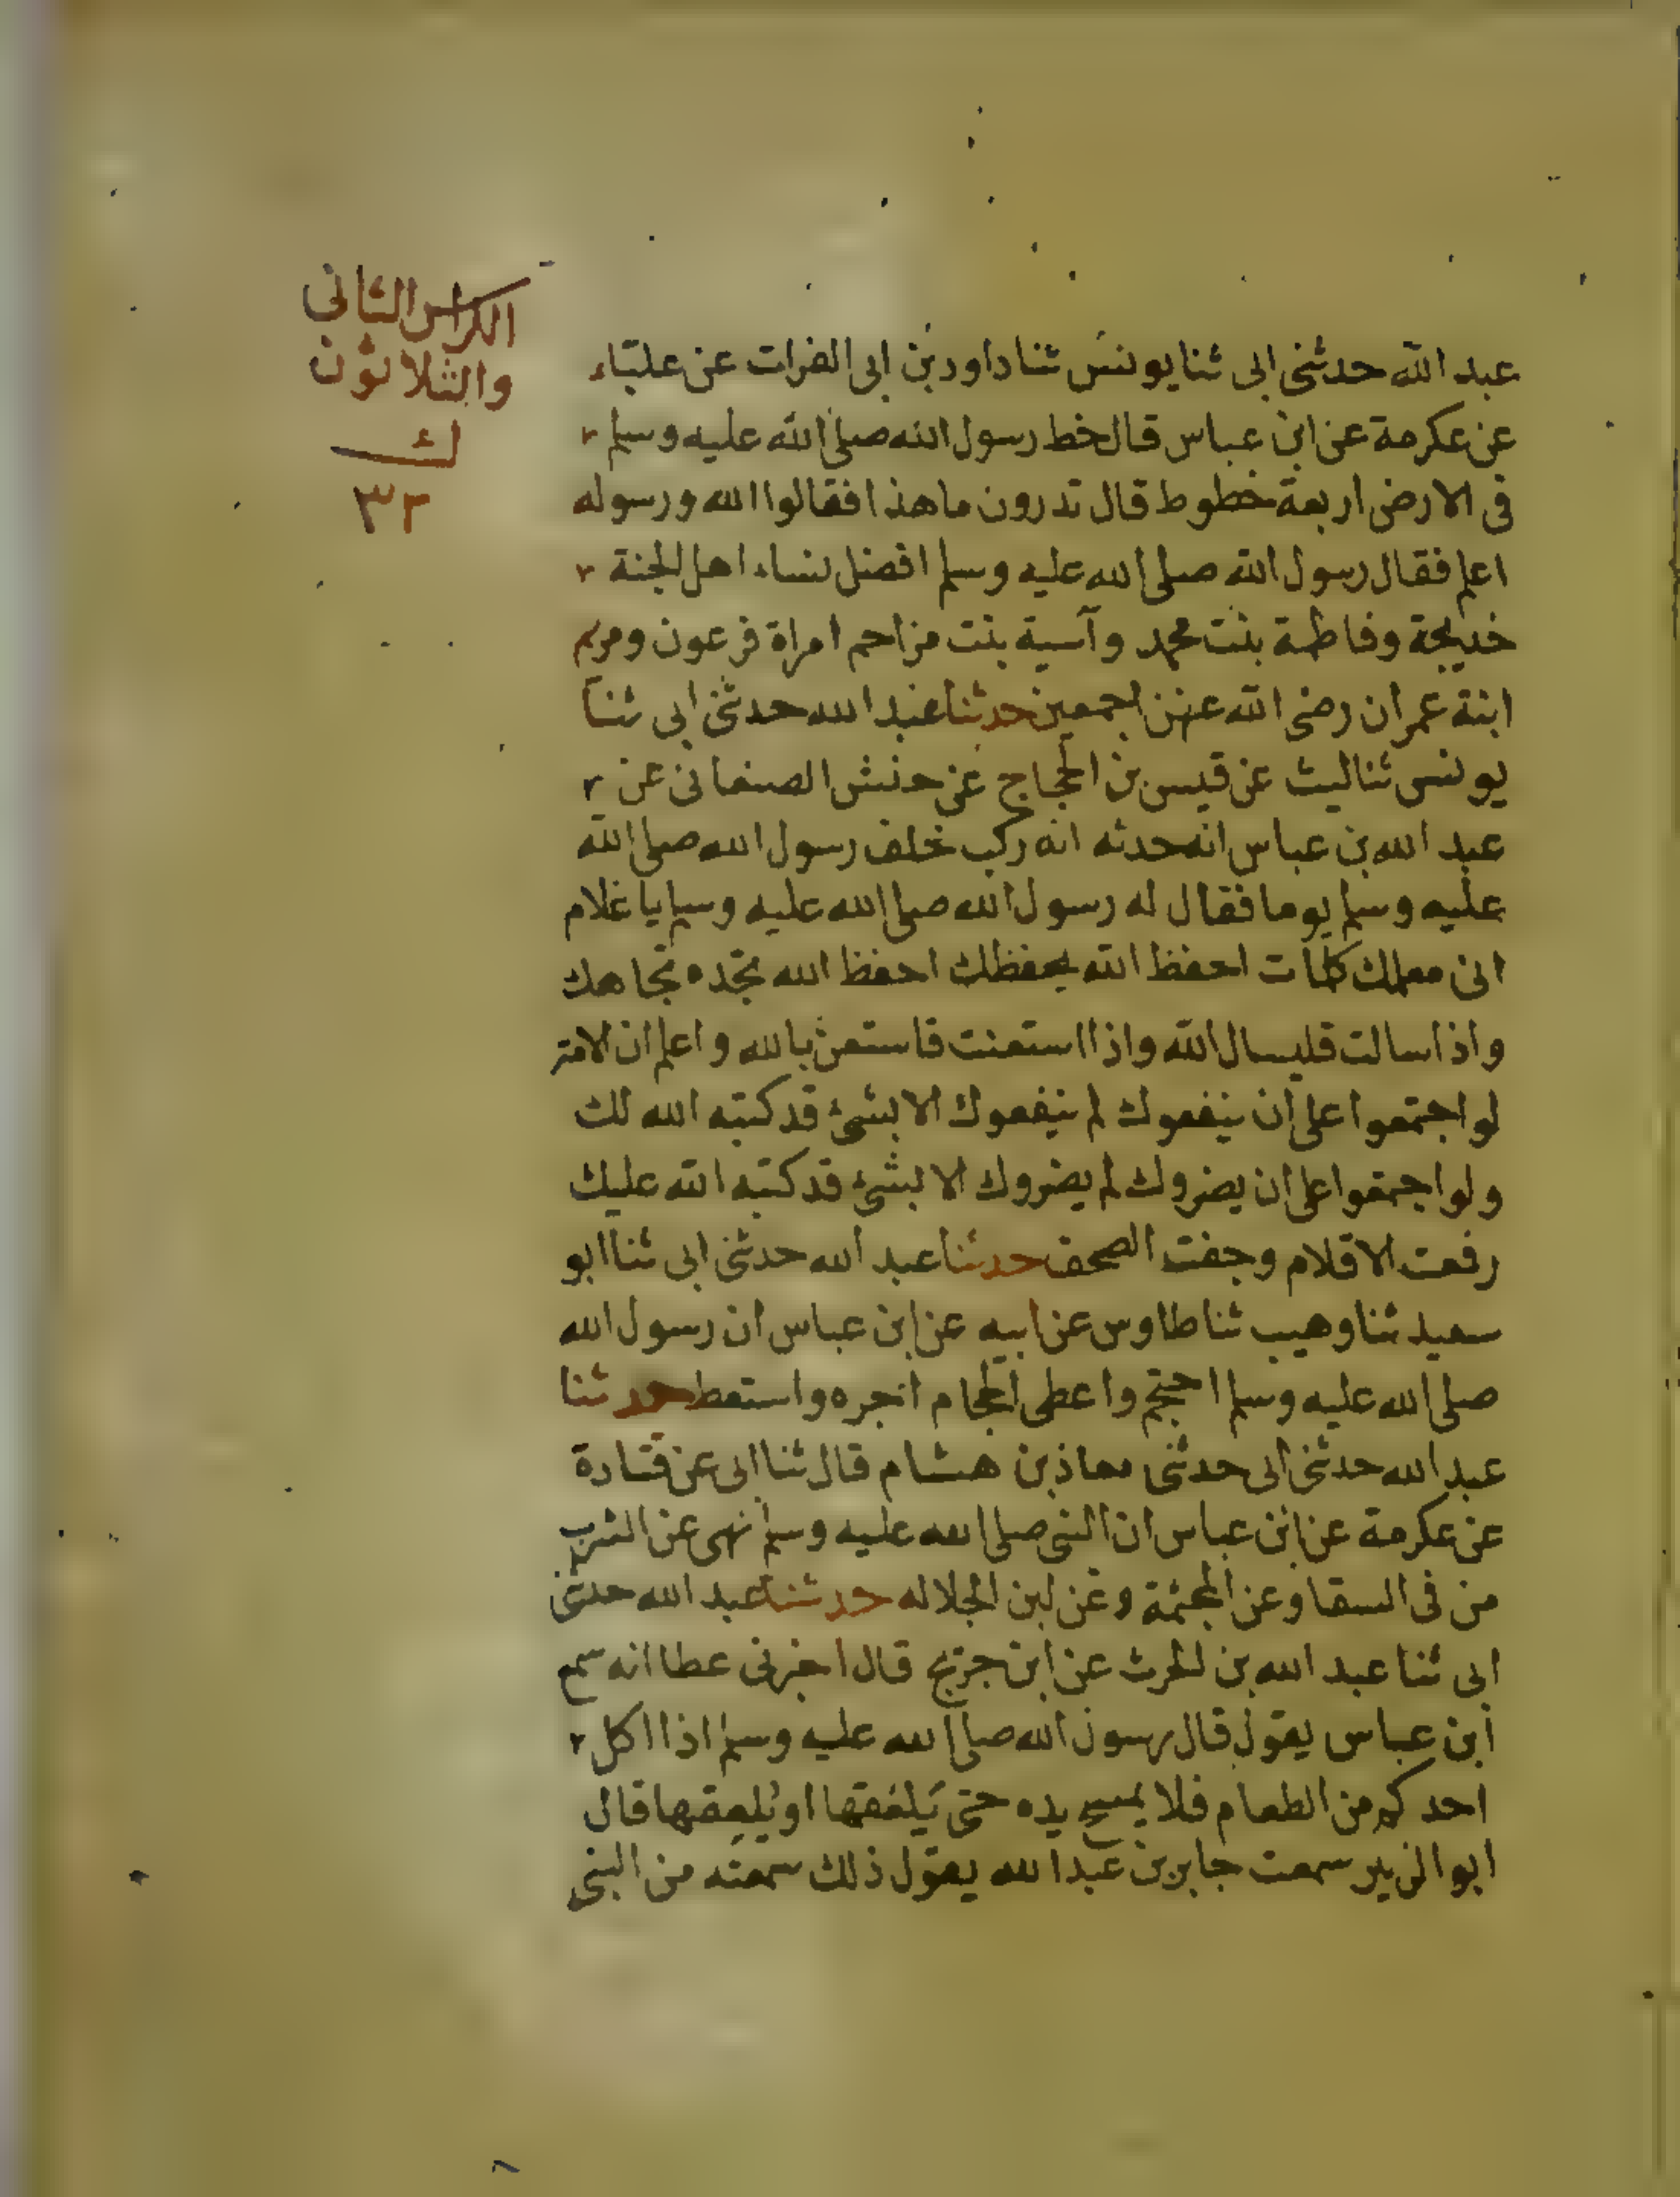 الكراس الثاني
والثلاثون
ك
٣٢
عبد الله حدثني ابي ثنا يونس ثنا داود بن ابي الفرات عن علباء
عن عكرمة عن ابن عباس قال خط رسول الله صلى الله عليه وسلم
في الارض اربعة خطوط قال تدرون ما هذا فقالوا الله ورسوله
اعلم فقال رسول الله صلى الله عليه وسلم افضل نساء اهل الجنة
خديجة وفاطمة بنت محمد وآسية بنت مزاحم امراة فرعون ومريم
ابنة عمران رضي الله عنهن اجمعين حدثنا عبد الله حدثني ابي ثنا
يونس ثنا ليث عن قيس بن الحجاج عن حنش الصنعاني عن
عبد الله بن عباس انه حدثه انه ركب خلف رسول الله صلى الله
عليه وسلم يوما فقال له رسول الله صلى الله عليه وسلم يا غلام
اني معلمك كلمات احفظ الله يحفظك احفظ الله تجده تجاهك
واذا سالت فليسال الله واذا استعنت فاستعن بالله واعلم ان الامة
لو اجتمعوا على ان ينفعوك لم ينفعوك الا بشئ قد كتبه الله لك
ولو اجتمعوا على ان يضروك لم يضروك الا بشئ قد كتبه الله عليك
رفعت الاقلام وجفت الصحف حدثنا عبد الله حدثني ابي ثنا ابو
سعيد ثنا وهيب ثنا طاوس عن ابيه عن ابن عباس ان رسول الله
صلى الله عليه وسلم احتجم واعطى الحجام اجره واستعط حدثنا
عبد الله حدثني ابي حدثني معاذ بن هشام قال ثنا ابي عن قتادة
عن عكرمة عن ابن عباس ان النبي صلى الله عليه وسلم نهى عن الشرب
من في السقا وعن المجثمة وعن لبن الجلاله حدثنا عبد الله حدثني
ابي ثنا عبد الله بن الحرث عن ابن جريج قال اخبرني عطا انه سمع
ابن عباس يقول قال رسول الله صلى الله عليه وسلم اذا اكل
احدكم من الطعام فلا يمسح يده حتى يَلعَقها او يُلعِقها قال
ابو الزبير سمعت جابر بن عبد الله يقول ذلك سمعته من النبي